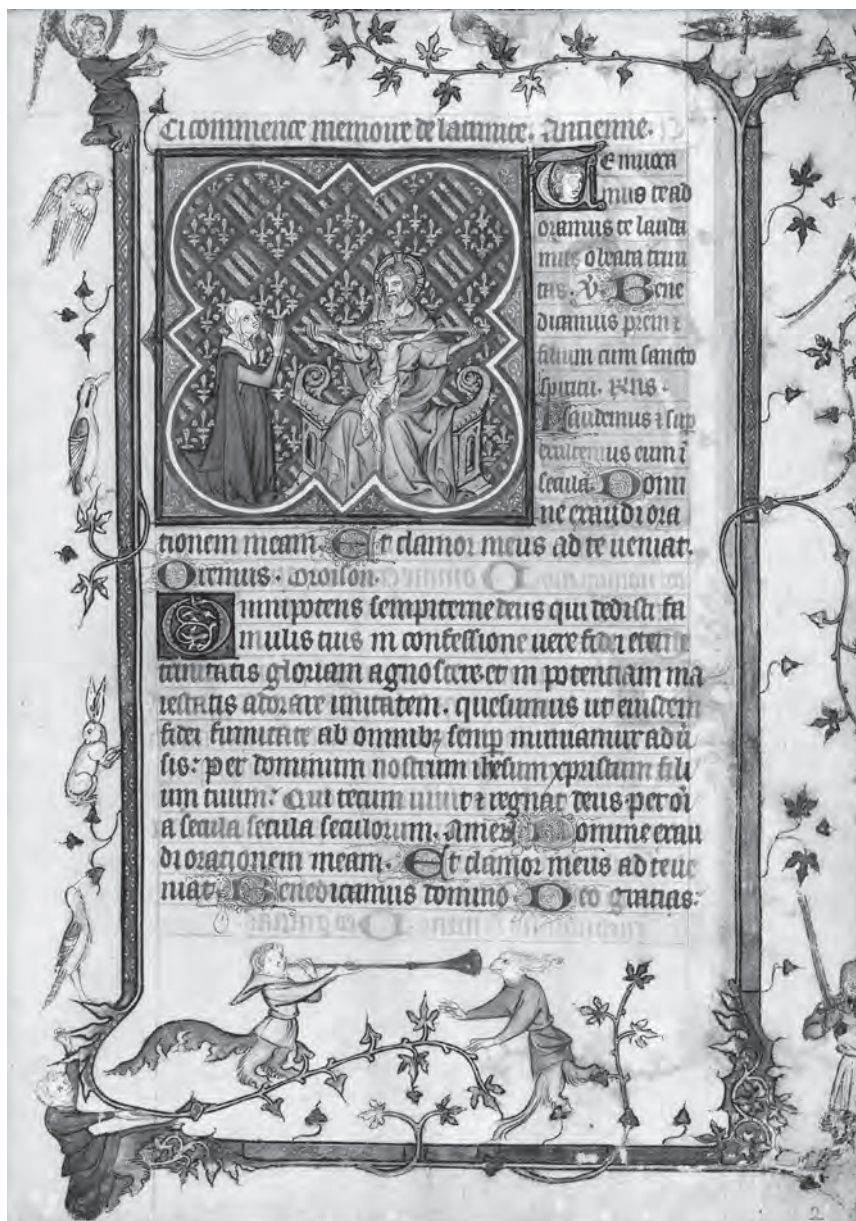 Ci commence memoire de la trinite. Antienne.
Te inuoca
mus te ad
oramus te lauda
mus o beata trini
tas. V Bene
dicamus prem ⁊
filium cum sancto
spiritu. Rns.
Laudemus ⁊ sup
exaltemus eum ī
secula. Domi
ne exaudi ora
tionem meam. Et clamor meus ad te ueniat.
Oremus. Oroison.
Omnipotens sempiterne deus qui dedisti fa
mulis tuis in confessione uere fidei eterne
trinitatis gloriam agnoscere. et in potentiam ma
iestatis adorare unitatem. quesumus ut eiusdem
fidei firmitate ab omnibꝫ semp muniamur adũ
sis: per dominum nostrum ihesum xpristum fili
um tuum: Qui tecum uiuit ⁊ regnat deus per oī
a secula secula seculorum. Amen Domine exau
di orationem meam. Et clamor meus ad te ue
niat. Benedicamus domino Deo gratias:
2